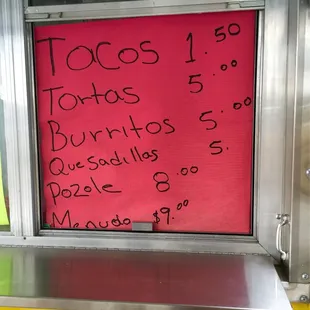 Tacos 1.50
Tortas 5.00
Burritos 5.00
Quesadillas 5.
Pozole 8.00
Menudo $9.00